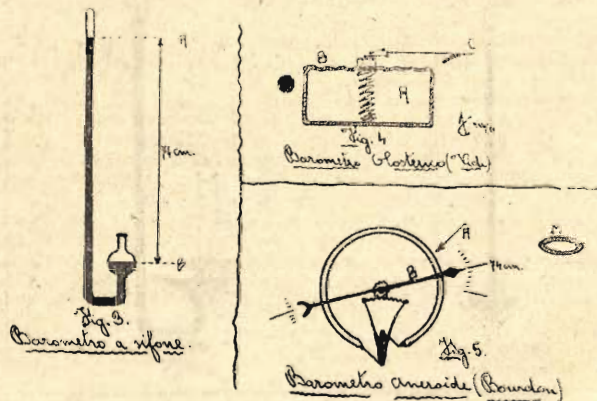 A
74 cm.
B
Fig. 3.
Barometro a sifone.
B
C
A
Fig. 4
Barometro Olosterico (Vidi)
A
M.
B
74 cm.
Fig. 5.
Barometro Aneroide (Bourdon)